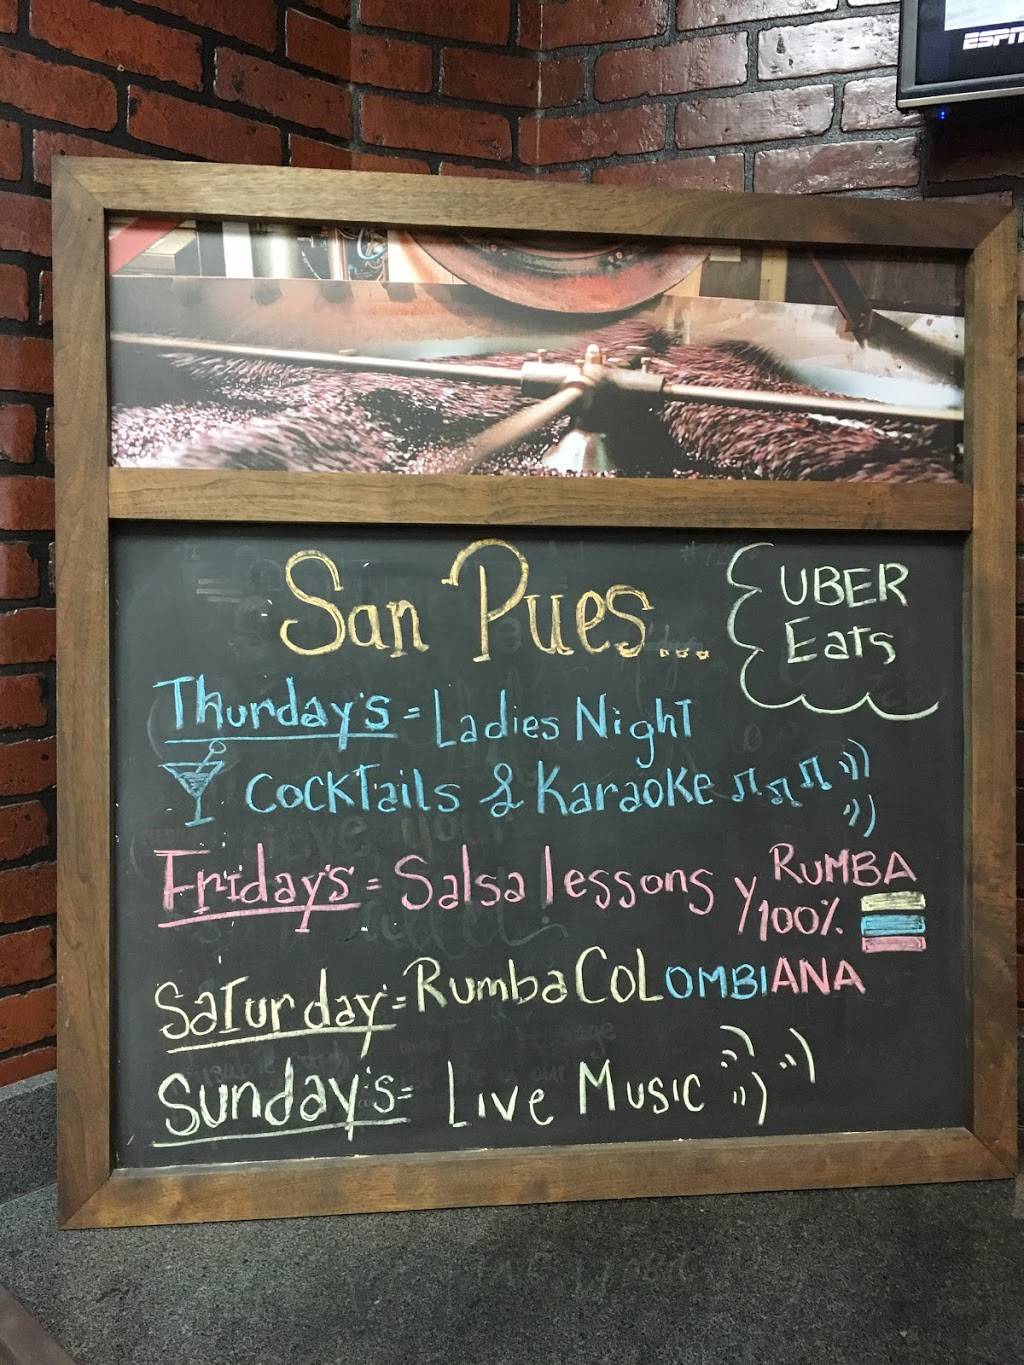 ESPN
San Pues...
UBER
Eats
Thurday's = Ladies Night
Cocktails & Karaoke
Fridays = Salsa lessons y RUMBA
100%
Saturday = Rumba COLOMBIANA
Sunday's = Live Music